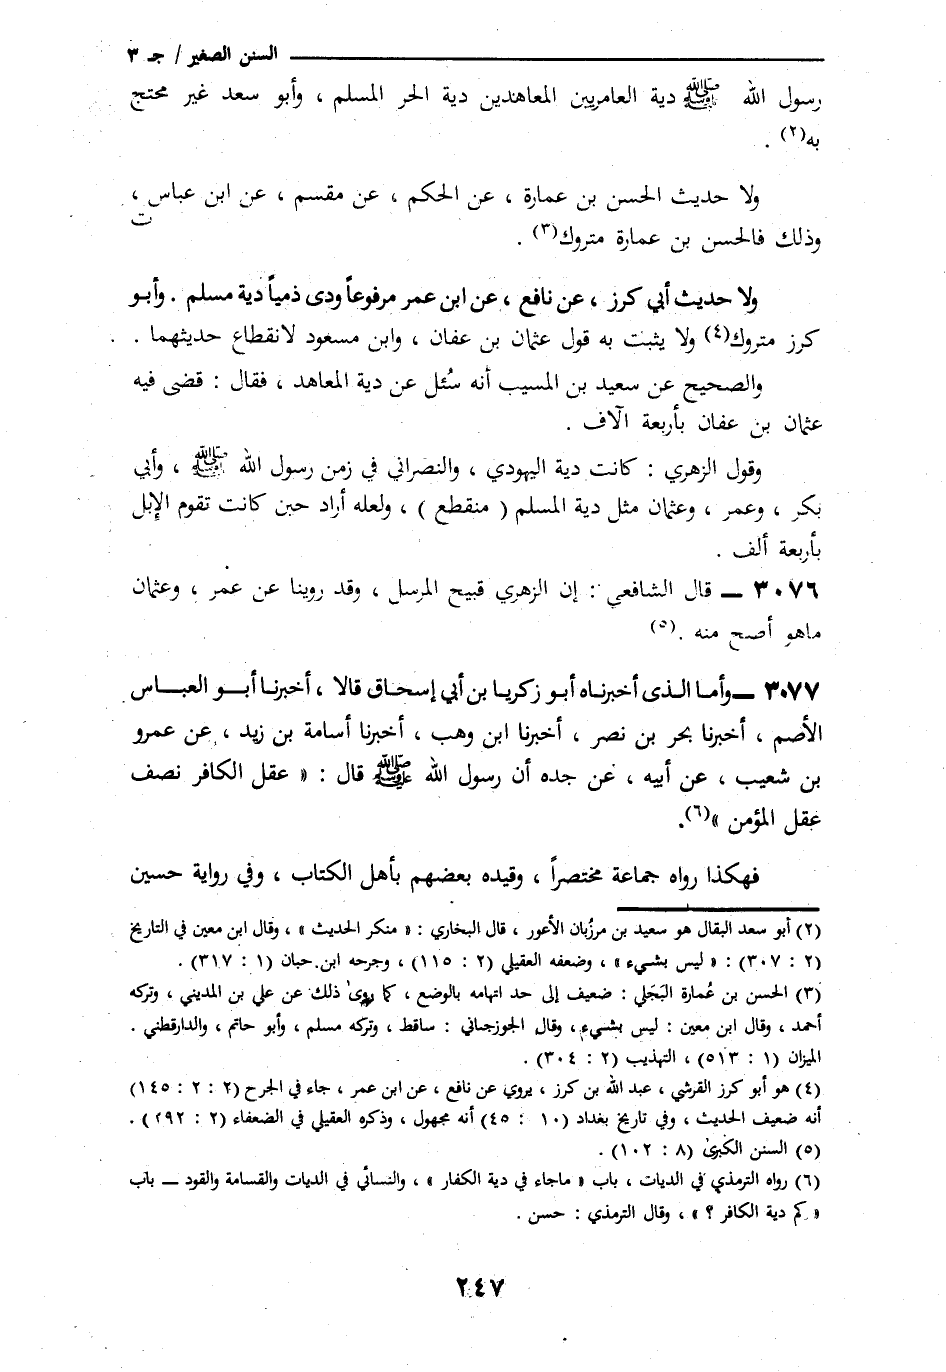 السنن الصغير / جـ ٣
رسول الله ﷺ دية العامريين المعاهدين دية الحر المسلم ، وأبو سعد غير محتج
به(٢) .
ولا حديث الحسن بن عمارة ، عن الحكم ، عن مقسم ، عن ابن عباس ،
وذلك فالحسن بن عمارة متروك(٣) .
ولا حديث أبي كرز ، عن نافع ، عن ابن عمر مرفوعاً ودى ذمياً دية مسلم . وأبو
كرز متروك(٤) ولا يثبت به قول عثمان بن عفان ، وابن مسعود لانقطاع حديثهما .
والصحيح عن سعيد بن المسيب أنه سُئل عن دية المعاهد ، فقال : قضى فيه
عثمان بن عفان بأربعة آلاف .
وقول الزهري : كانت دية اليهودي ، والنصراني في زمن رسول الله ﷺ ، وأبي
بكر ، وعمر ، وعثمان مثل دية المسلم ( منقطع ) ، ولعله أراد حين كانت تقوم الإبل
بأربعة ألف .
٣٠٧٦ ــ قال الشافعي : إن الزهري قبيح المرسل ، وقد روينا عن عمر ، وعثمان
ماهو أصح منه .(٥)
٣٠٧٧ ــ وأما الذى أخبرناه أبو زكريا بن أبي إسحاق قالا ، أخبرنا أبو العباس
الأصم ، أخبرنا بحر بن نصر ، أخبرنا ابن وهب ، أخبرنا أسامة بن زيد ، عن عمرو
بن شعيب ، عن أبيه ، عن جده أن رسول الله ﷺ قال : « عقل الكافر نصف
عقل المؤمن »(٦).
فهكذا رواه جماعة مختصراً ، وقيده بعضهم بأهل الكتاب ، وفي رواية حسين
(٢) أبو سعد البقال هو سعيد بن مرزُبان الأعور ، قال البخاري : « منكر الحديث » ، وقال ابن معين في التاريخ
(٢ : ٣٠٧) : « ليس بشيء » ، وضعفه العقيلي (٢ : ١١٥) ، وجرحه ابن حبان (١ : ٣١٧) .
(٣) الحسن بن عُمارة البَجَلي : ضعيف إلى حد اتهامه بالوضع ، كما روى ذلك عن علي بن المديني ، وتركه
أحمد ، وقال ابن معين : ليس بشيء ، وقال الجوزجاني : ساقط ، وتركه مسلم ، وأبو حاتم ، والدارقطني .
الميزان (١ : ٥١٣) ، التهذيب (٢ : ٣٠٤) .
(٤) هو أبو كرز القرشي ، عبد الله بن كرز ، يروي عن نافع ، عن ابن عمر ، جاء في الجرح (٢ : ٢ : ١٤٥)
أنه ضعيف الحديث ، وفي تاريخ بغداد (١٠ : ٤٥) أنه مجهول ، وذكره العقيلي في الضعفاء (٢ : ٢٩٢) .
(٥) السنن الكبرى (٨ : ١٠٢) .
(٦) رواه الترمذي في الديات ، باب « ماجاء في دية الكفار » ، والنسائي في الديات والقسامة والقود ــ باب
« كم دية الكافر ؟ » ، وقال الترمذي : حسن .
٢٤٧